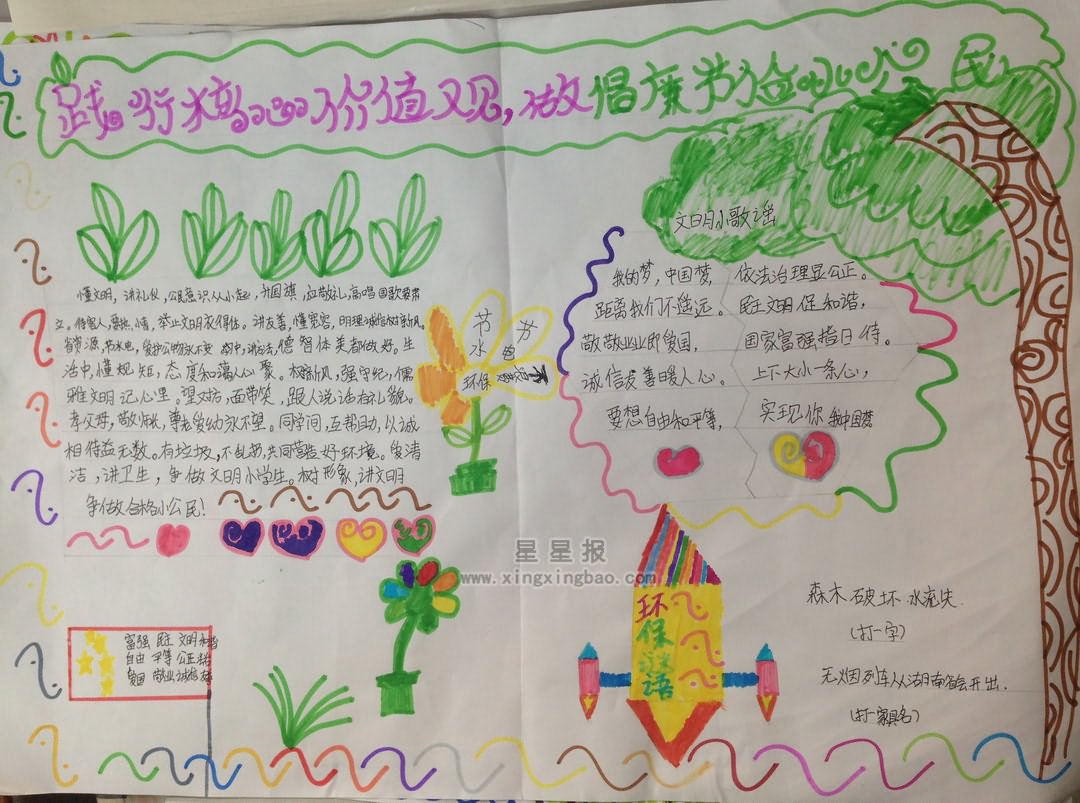 践行核心价值观,做倡廉节俭小公民
懂文明,讲礼仪,公民意识从小起,升国旗,应敬礼,高唱国歌要肃
立。待客人,要热情,举止文明衣得体。讲友善,懂宽容,明理诚信树新风。
省资源,节水电,爱护公物永不变
德智体美都做好。生
活中,懂规矩,态度和蔼人心聚。树新风,强守纪,儒
雅文明记心里。望对方,面带笑,跟人说话有礼貌。
孝父母,敬师长,尊老爱幼永不忘。同学间,互帮助,以诚
相待益无数。有垃圾,不乱扔,共同营造好环境。爱清
洁,讲卫生,争做文明小学生。树形象,讲文明
争做合格小公民!
节水
节电
环保
文明小歌谣
我的梦,中国梦,
距离我们不遥远。
敬敬业业即爱国,
诚信友善暖人心。
要想自由和平等,
依法治理显公正。
民主文明促和谐,
国家富强指日待。
上下大小一条心,
实现你我中国梦
星星报
www.xingxingbao.com
环保谜语
森木破坏水流失
(打一字)
无烟列车从湖南省会开出.
(打一家具名)
富强 民主 文明 和谐
自由 平等 公正 法治
爱国 敬业 诚信 友善